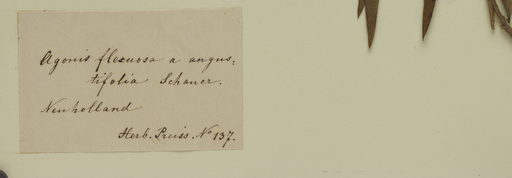 Agonis flexuosa a angus:
tifolia Schauer.
Neuholland
Herb. Preiss. No 137.